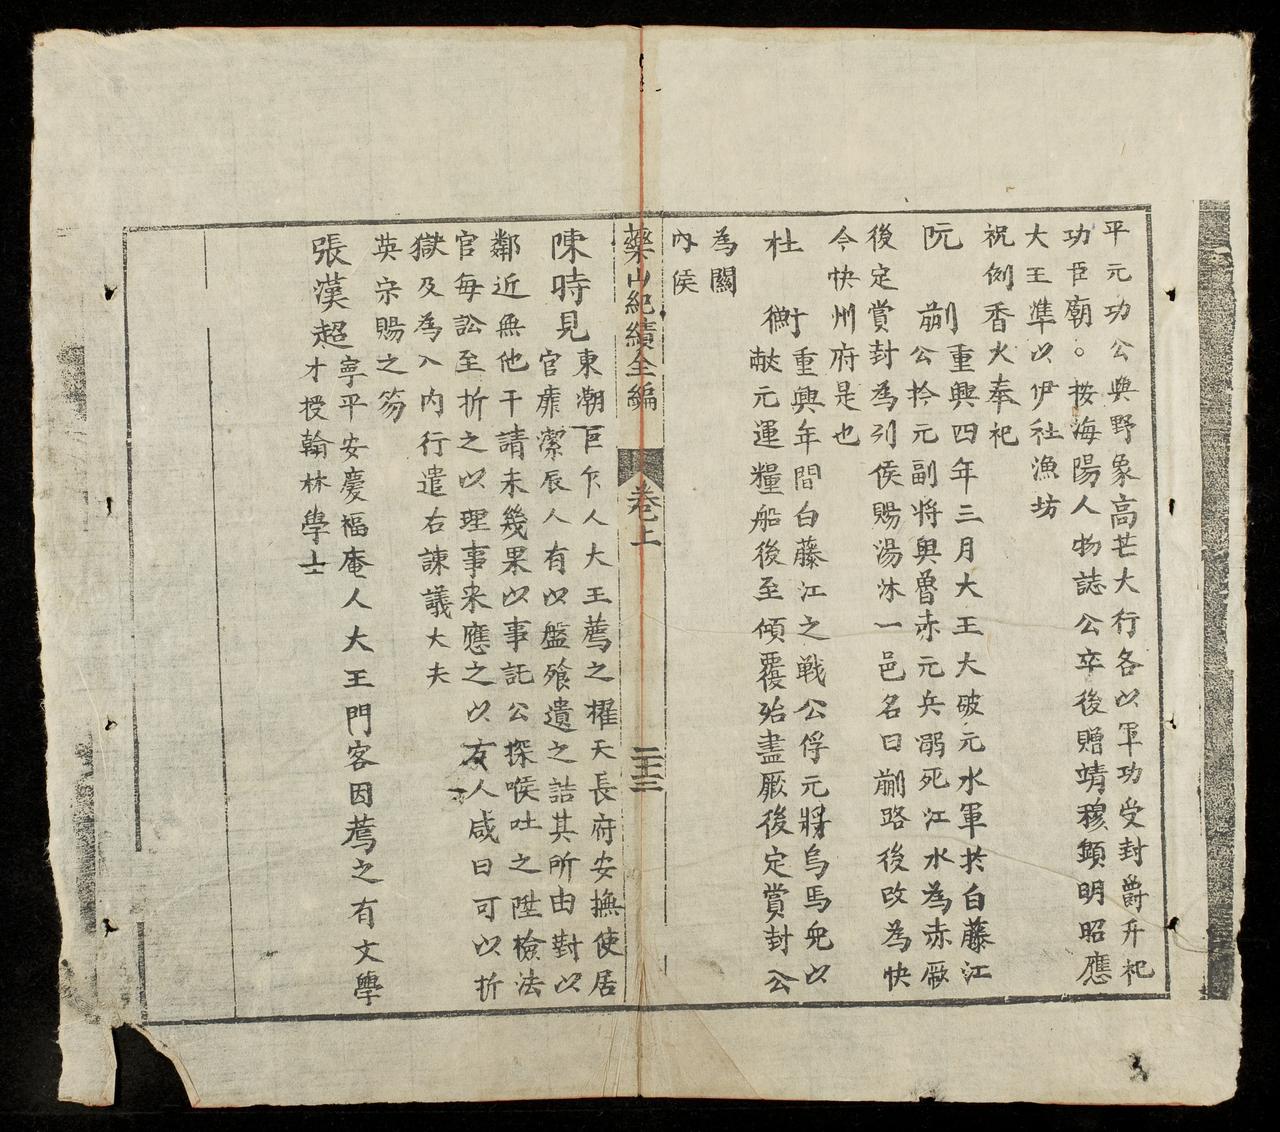 平元功公與野象高芒大行各以軍功受封爵升祀
功臣廟。按海陽人物誌公卒後贈靖穆顯明昭應
大王準以伊社漁坊
祝例香火奉祀
阮 蒯 重興四年三月大王大破元水軍於白藤江
公拎元副將與魯赤元兵溺死江水為赤厥
後定賞封為列侯賜湯沐一邑名曰蒯路後改為快
今快州府是也
杜 衡 重興年間白藤江之戰公俘元將烏馬兒以
献元運糧船後至傾覆殆盡厥後定賞封公
為關
內侯
藥山紀績全編 卷上 二十三
陳時見 東潮巨乍人大王薦之擢天長府安撫使居
官廉潔辰人有以盤飱遺之詰其所由對以
鄰近無他干請未幾果以事託公探喉吐之陞檢法
官每訟至折之以理事来應之以方人咸曰可以折
獄及為入內行遣右諫議大夫
英宗賜之笏
張漢超 寧平安慶福庵人大王門客因薦之有文學
才授翰林學士